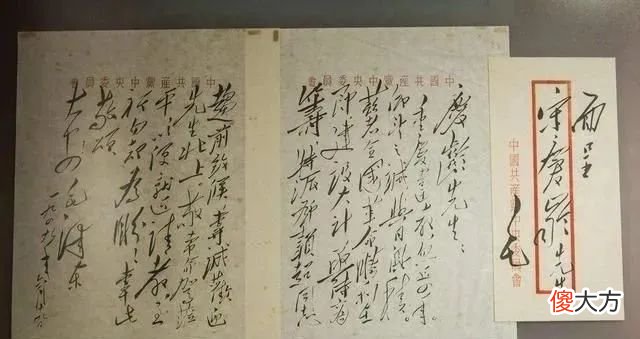 面呈
宋慶齡先生
毛
中國共産黨中央委員會
中國共産黨中央委員會
慶齡先生：
重慶違教，忽近四年。
仰望之誠，與日俱積。
茲者全國革命勝利在
即，建設大計，亟待商
籌，特派鄧穎超同志
中國共産黨中央委員會
趨前致候，專誠歡迎
先生北上。敬希命駕蒞
平，以便就近請教，至
祈勿却為盼！專此
敬頌
大安！毛澤東
一九四九年六月十九日
傻大方